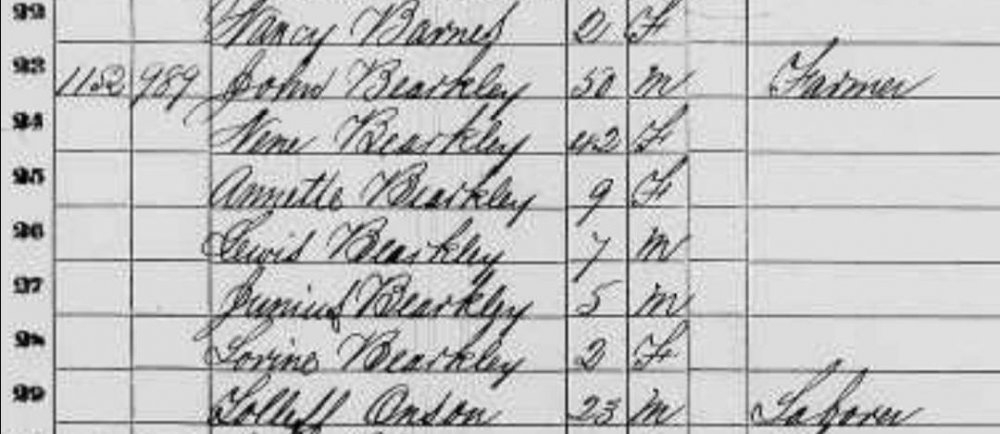 22 Nancy Barnes 2 F
23 1152 989 John Bearkley 50 M Farmer
24 Nene Bearkley 42 F
25 Annette Bearkley 9 F
26 Lewis Bearkley 7 M
27 Junius Bearkley 5 M
28 Lorine Bearkley 2 F
29 Onson 23 M Laborer